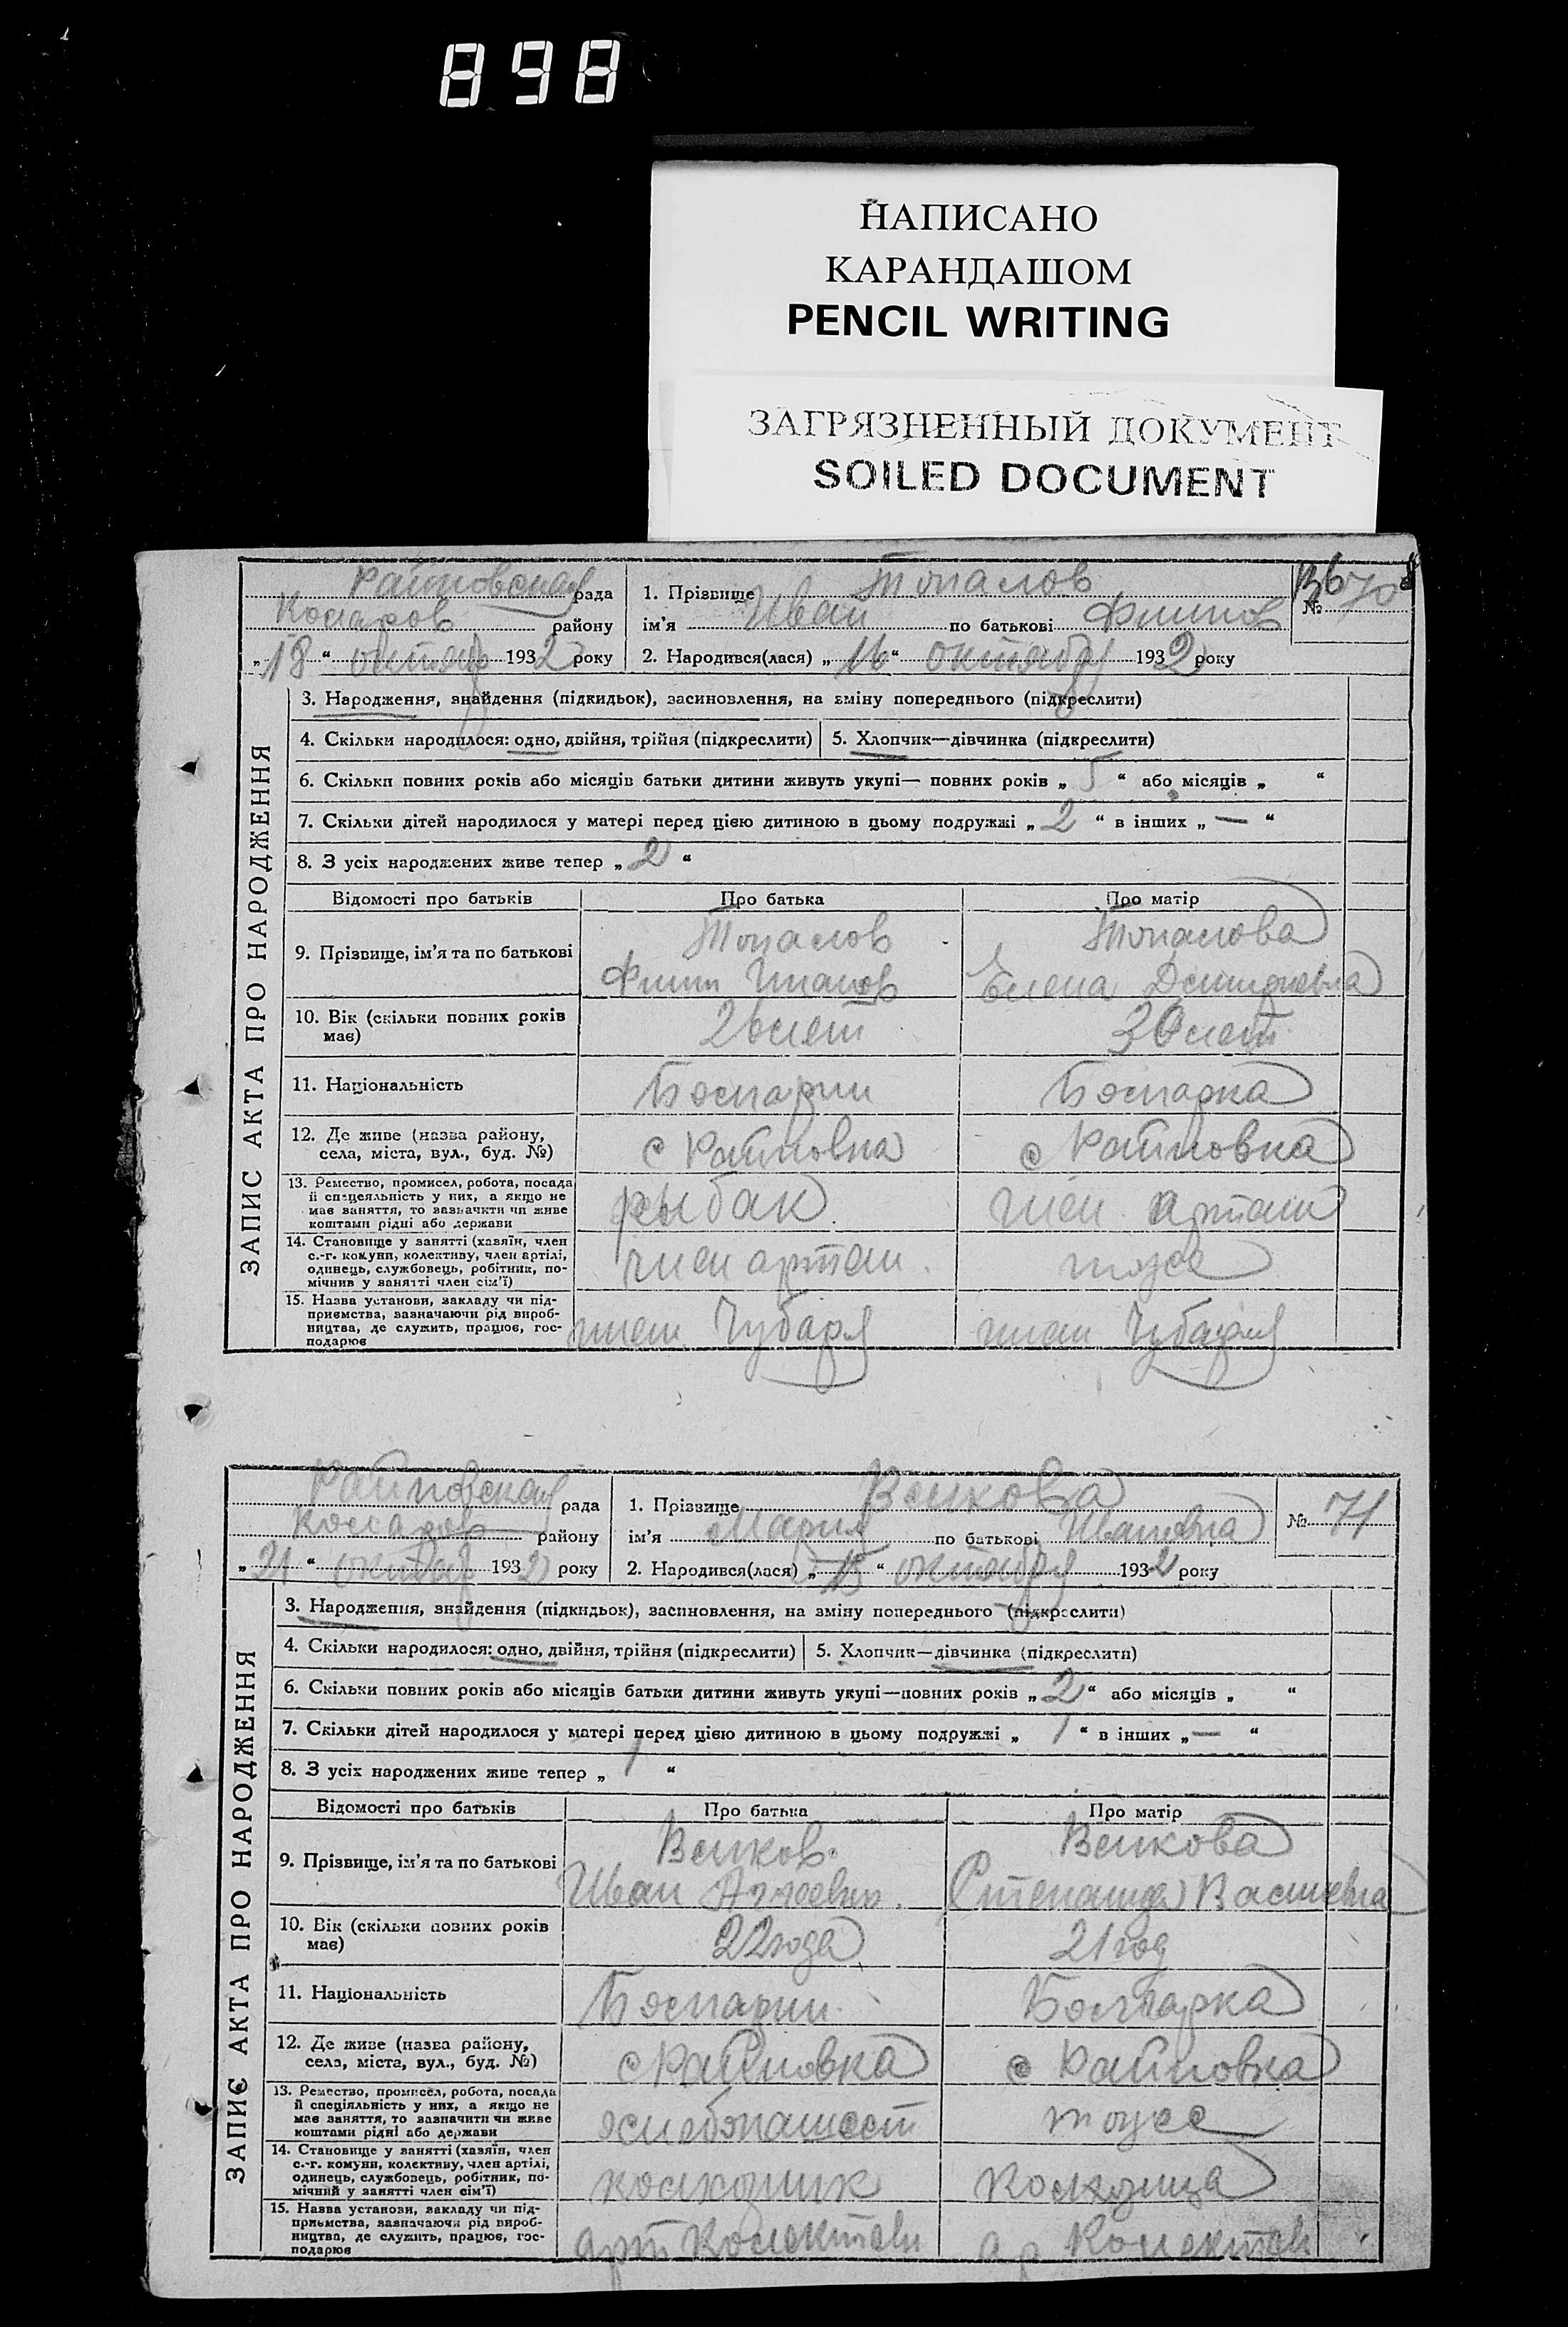 898
НАПИСАНО
КАРАНДАШОМ
PENCIL WRITING
ЗАГРЯЗНЕННЫЙ ДОКУМЕНТ
SOILED DOCUMENT
Райновская рада
района Комаров району
„18“ октябр 1932 року
1. Прізвище Топалов
ім'я Иван по батькові Филипов
2. Народився(лася) „16“ октября 1932 року
№ 70
ЗАПИС АКТА ПРО НАРОДЖЕННЯ
3. Народження, знайдення (підкидьок), засиновлення, на зміну попереднього (підкреслити)
4. Скільки народилося: одно, двійня, трійня (підкреслити) 5. Хлопчик—дівчинка (підкреслити)
6. Скільки повних років або місяців батьки дитини живуть укупі— повних років „5“ або місяців „ “
7. Скільки дітей народилося у матері перед цією дитиною в цьому подружжі „2“ в інших „—“
8. З усіх народжених живе тепер „2“
Відомості про батьків Про батька Про матір
9. Прізвище, ім'я та по батькові Топалов Топалова
Филип Елена
10. Вік (скільки повних років має) 26 лет 30 лет
11. Національність Болгарин Болгарка
12. Де живе (назва району, села, міста, вул., буд. №) с Райновка с Райновка
13. Ремество, промисел, робота, посада
й спеціяльність у них, а якщо не
має заняття, то зазначити чи живе
коштами рідні або держави
рыбак член артели
14. Становище у занятті (хазяїн, член
с.-г. комуни, колективу, член артілі,
одинець, службовець, робітник, по-
мічнив у занятті член сім'ї)
член артели тоже
15. Назва установи, закладу чи під-
приємства, зазначаючи рід вироб-
ництва, де служить, працює, гос-
подарює
имени Чубаря имени Чубаря
Райновская рада
Комаров району
„21“ октябр 1932 року
1. Прізвище Велкова
ім'я Мария по батькові Ивановна
2. Народився(лася) „15“ октября 1932 року
№ 71
ЗАПИС АКТА ПРО НАРОДЖЕННЯ
3. Народження, знайдення (підкидьок), засиновлення, на зміну попереднього (підкреслити)
4. Скільки народилося: одно, двійня, трійня (підкреслити) 5. Хлопчик—дівчинка (підкреслити)
6. Скільки повних років або місяців батьки дитини живуть укупі—повних років „2“ або місяців „ “
7. Скільки дітей народилося у матері перед цією дитиною в цьому подружжі „1“ в інших „—“
8. З усіх народжених живе тепер „1“
Відомості про батьків Про батька Про матір
9. Прізвище, ім'я та по батькові Велков Велкова
Иван Степанида Василевна
10. Вік (скільки повних років має) 22 года 21 год
11. Національність Болгарин Болгарка
12. Де живе (назва району, села, міста, вул., буд. №) с Райновка с Райновка
13. Ремество, промисел, робота, посада
й спеціяльність у них, а якщо не
має заняття, то зазначити чи живе
коштами рідні або держави
хлебопашест тоже
14. Становище у занятті (хазяїн, член
с.-г. комуни, колективу, член артілі,
одинець, службовець, робітник, по-
мічний у занятті член сім'ї)
колхозник колхозница
15. Назва установи, закладу чи під-
приємства, зазначаючи рід вироб-
ництва, де служить, працює, гос-
подарює
арт Колектив ар Колектив